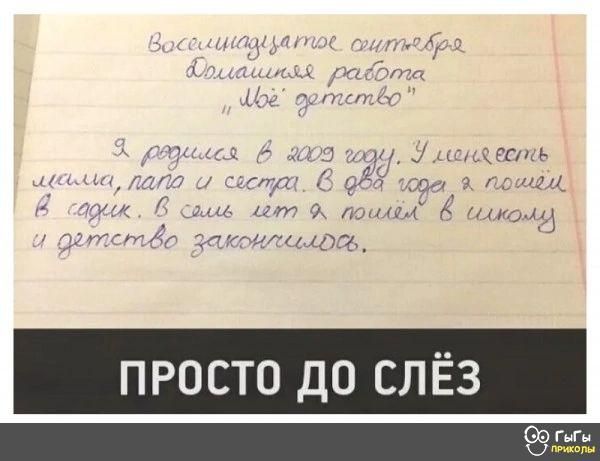 Восемнадцатое сентября
Домашняя работа
„Моё детство"
Я родился в 2009 году. У меня есть
мама, папа и сестра. В два года я пошёл
в садик. В семь лет я пошёл в школу
и детство закончилось.
ПРОСТО ДО СЛЁЗ
ГыГы
ПРИКОЛЫ